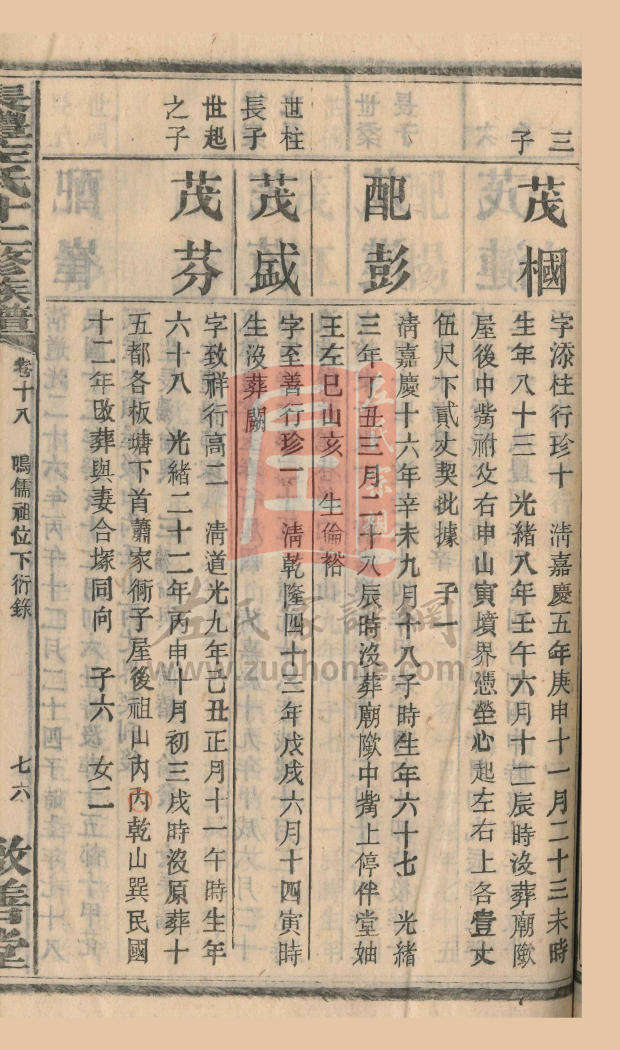 三子
茂椢
字添柱行珍十 清嘉慶五年庚申十一月二十三未時
生年八十三 光緒八年壬午六月十二辰時沒葬廟陂
屋後中嘴祔父右申山寅墳界憑塋心起左右上各壹丈
伍尺下貳丈契批據 子一
配彭
清嘉慶十六年辛未九月十八子時生年六十七 光緒
三年丁丑三月二十八辰時沒葬廟陂中嘴上停伴堂妯
王左巳山亥 生倫裕
世柱長子
茂盛
字至善行珍一 清乾隆四十三年戊戌六月十四寅時
生沒葬闕
世起之子
茂芬
字致祥行高二 清道光九年己丑正月十一午時生年
六十八 光緒二十二年丙申十月初三戌時沒原葬十
五都各板塘下首蕭家衕子屋後祖山內丙乾山巽民國
十二年改葬與妻合塚同向 子六 女二
長豐左氏十二修族譜
卷十八 鳴儒祖位下衍錄
七六
敦善堂
左氏家譜網
www.zuohome.com